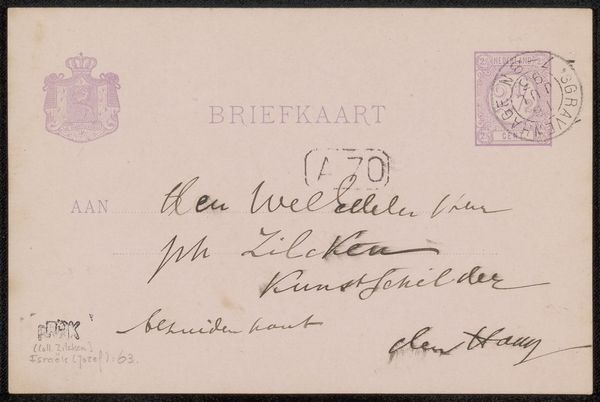 NEDERLAND
2½ CENT 2½
'S GRAVENHAGE
BRIEFKAART
A 70
AAN
Den WelEdelen Heer
Ph Zilcken
Kunstschilder
bezuidenhout
den Haag
(Coll. Zilcken)
Israëls (Jozef): 63.